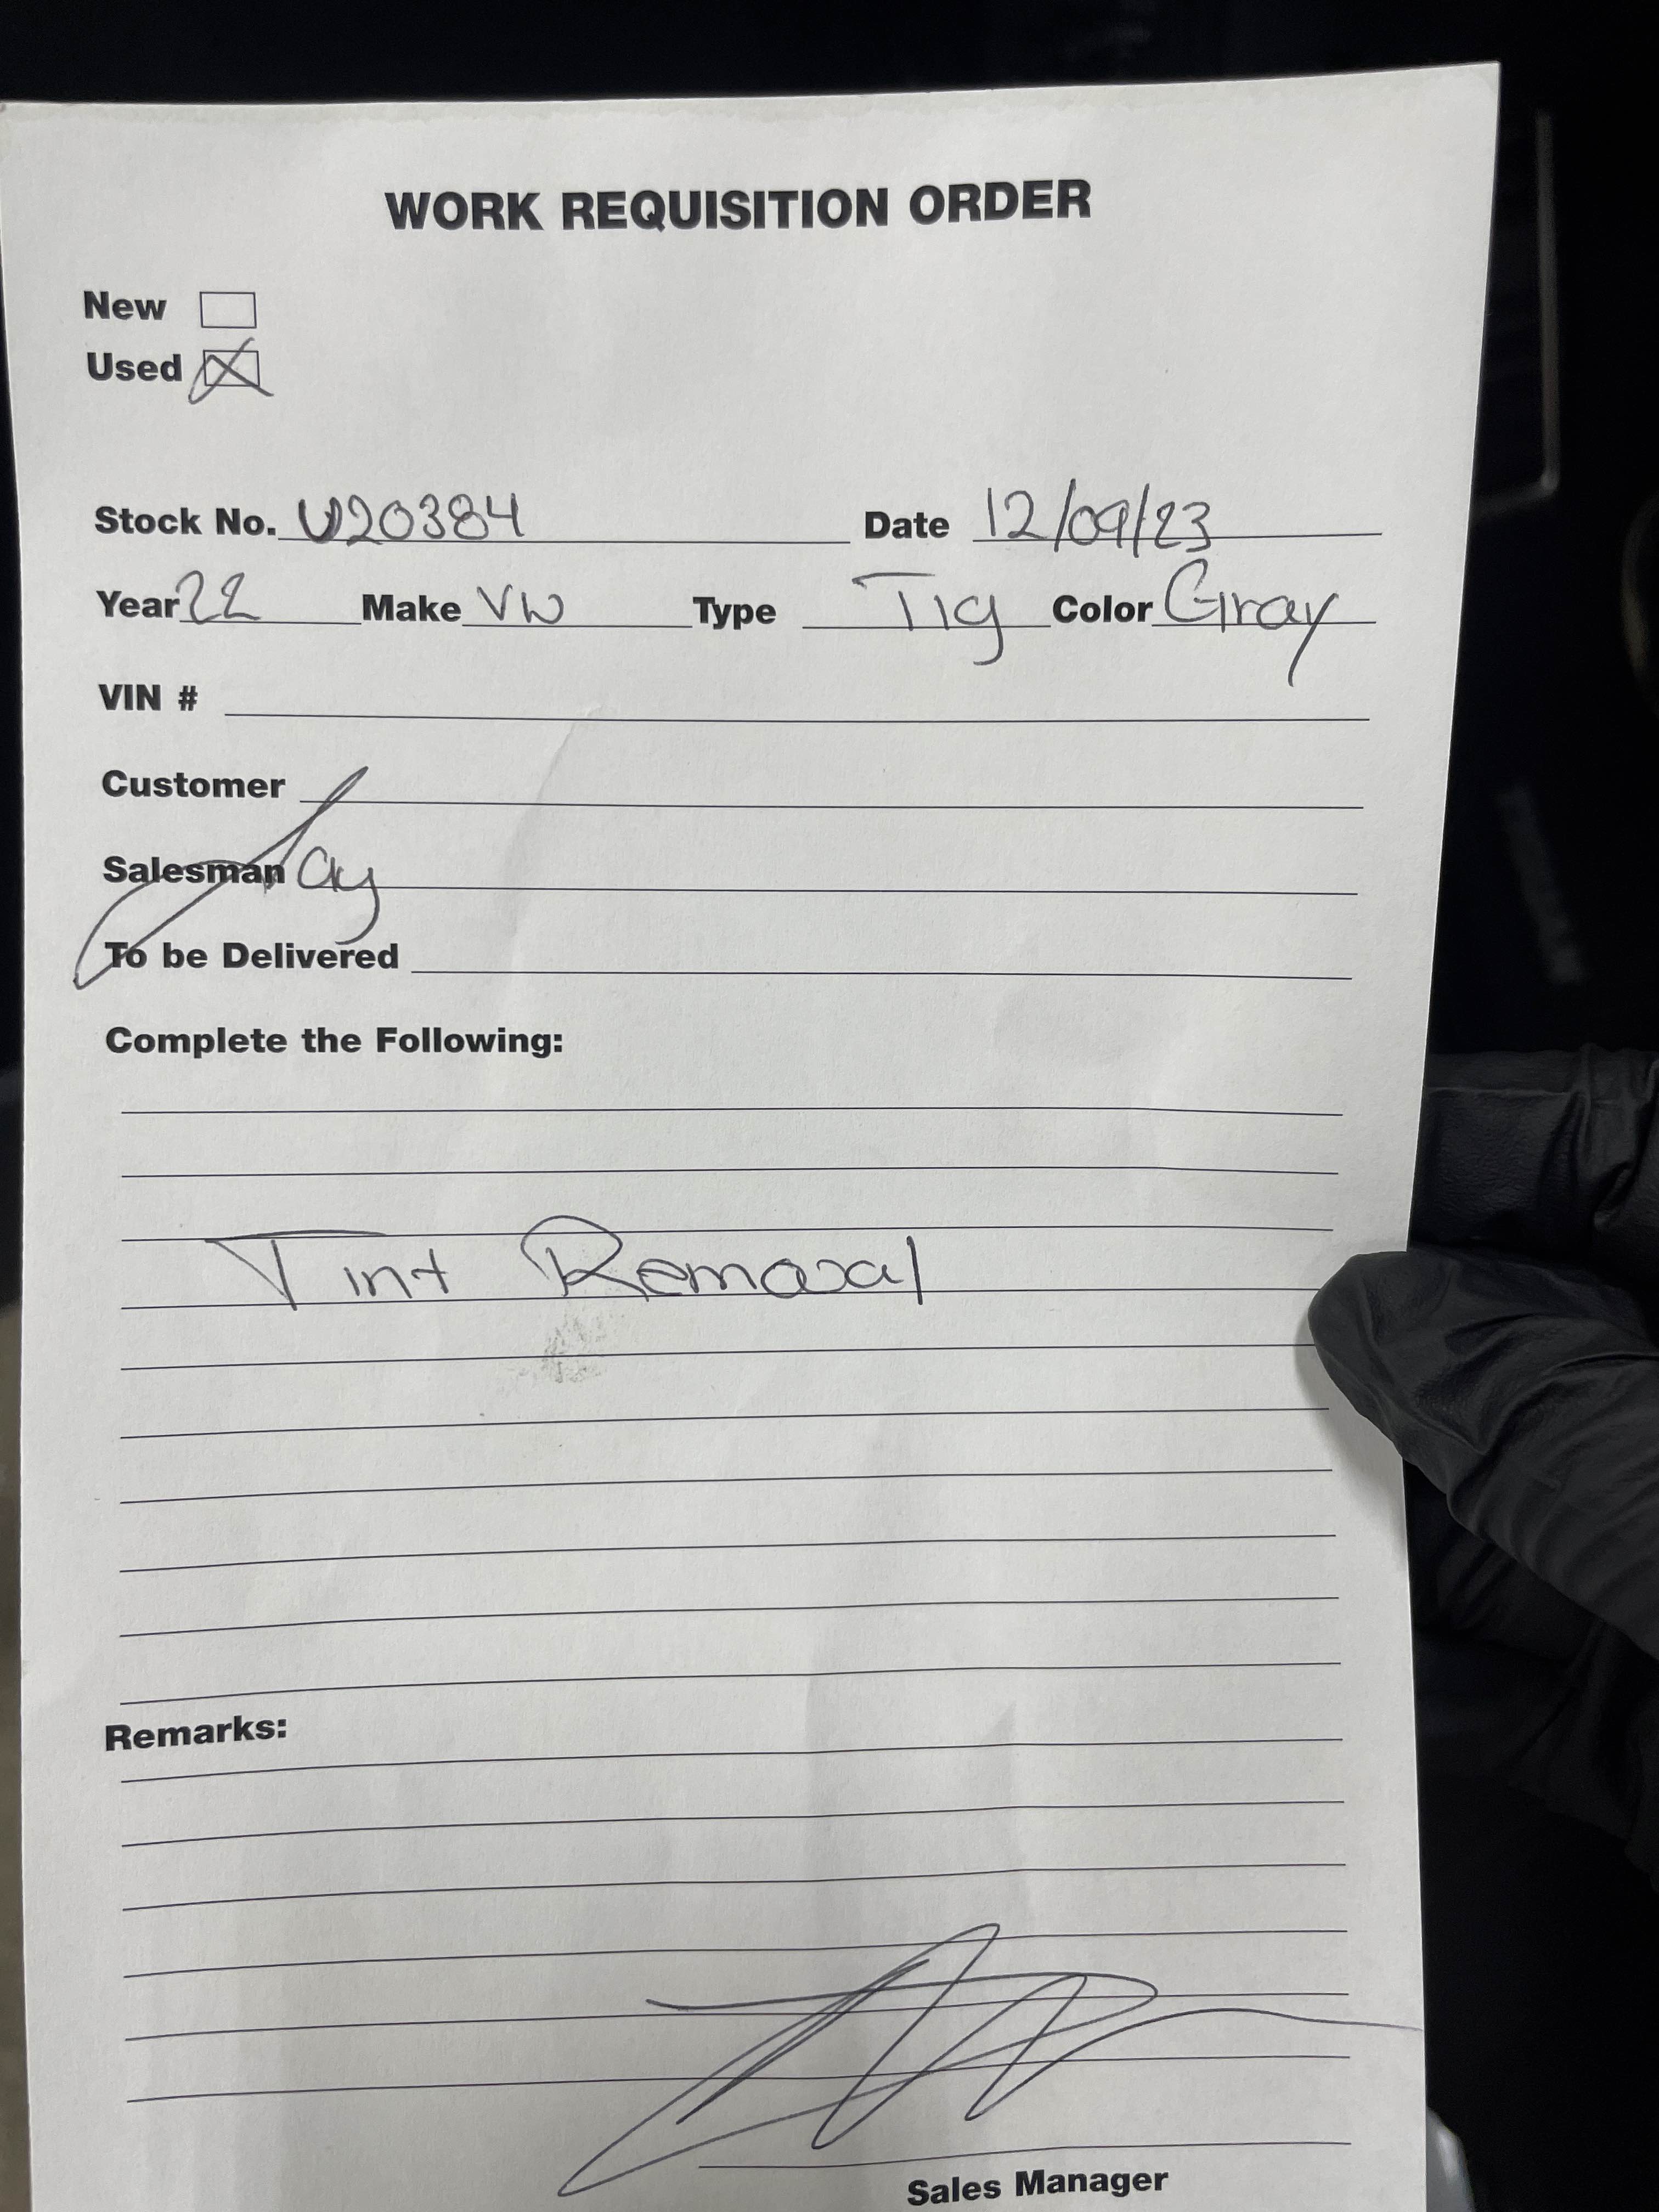 WORK REQUISITION ORDER
New
Used
Stock No. U20384 Date 12/09/23
Year 22 Make VW Type Tig Color Gray
VIN #
Customer
Salesman Jay
To be Delivered
Complete the Following:
Tint Removal
Remarks:
Sales Manager